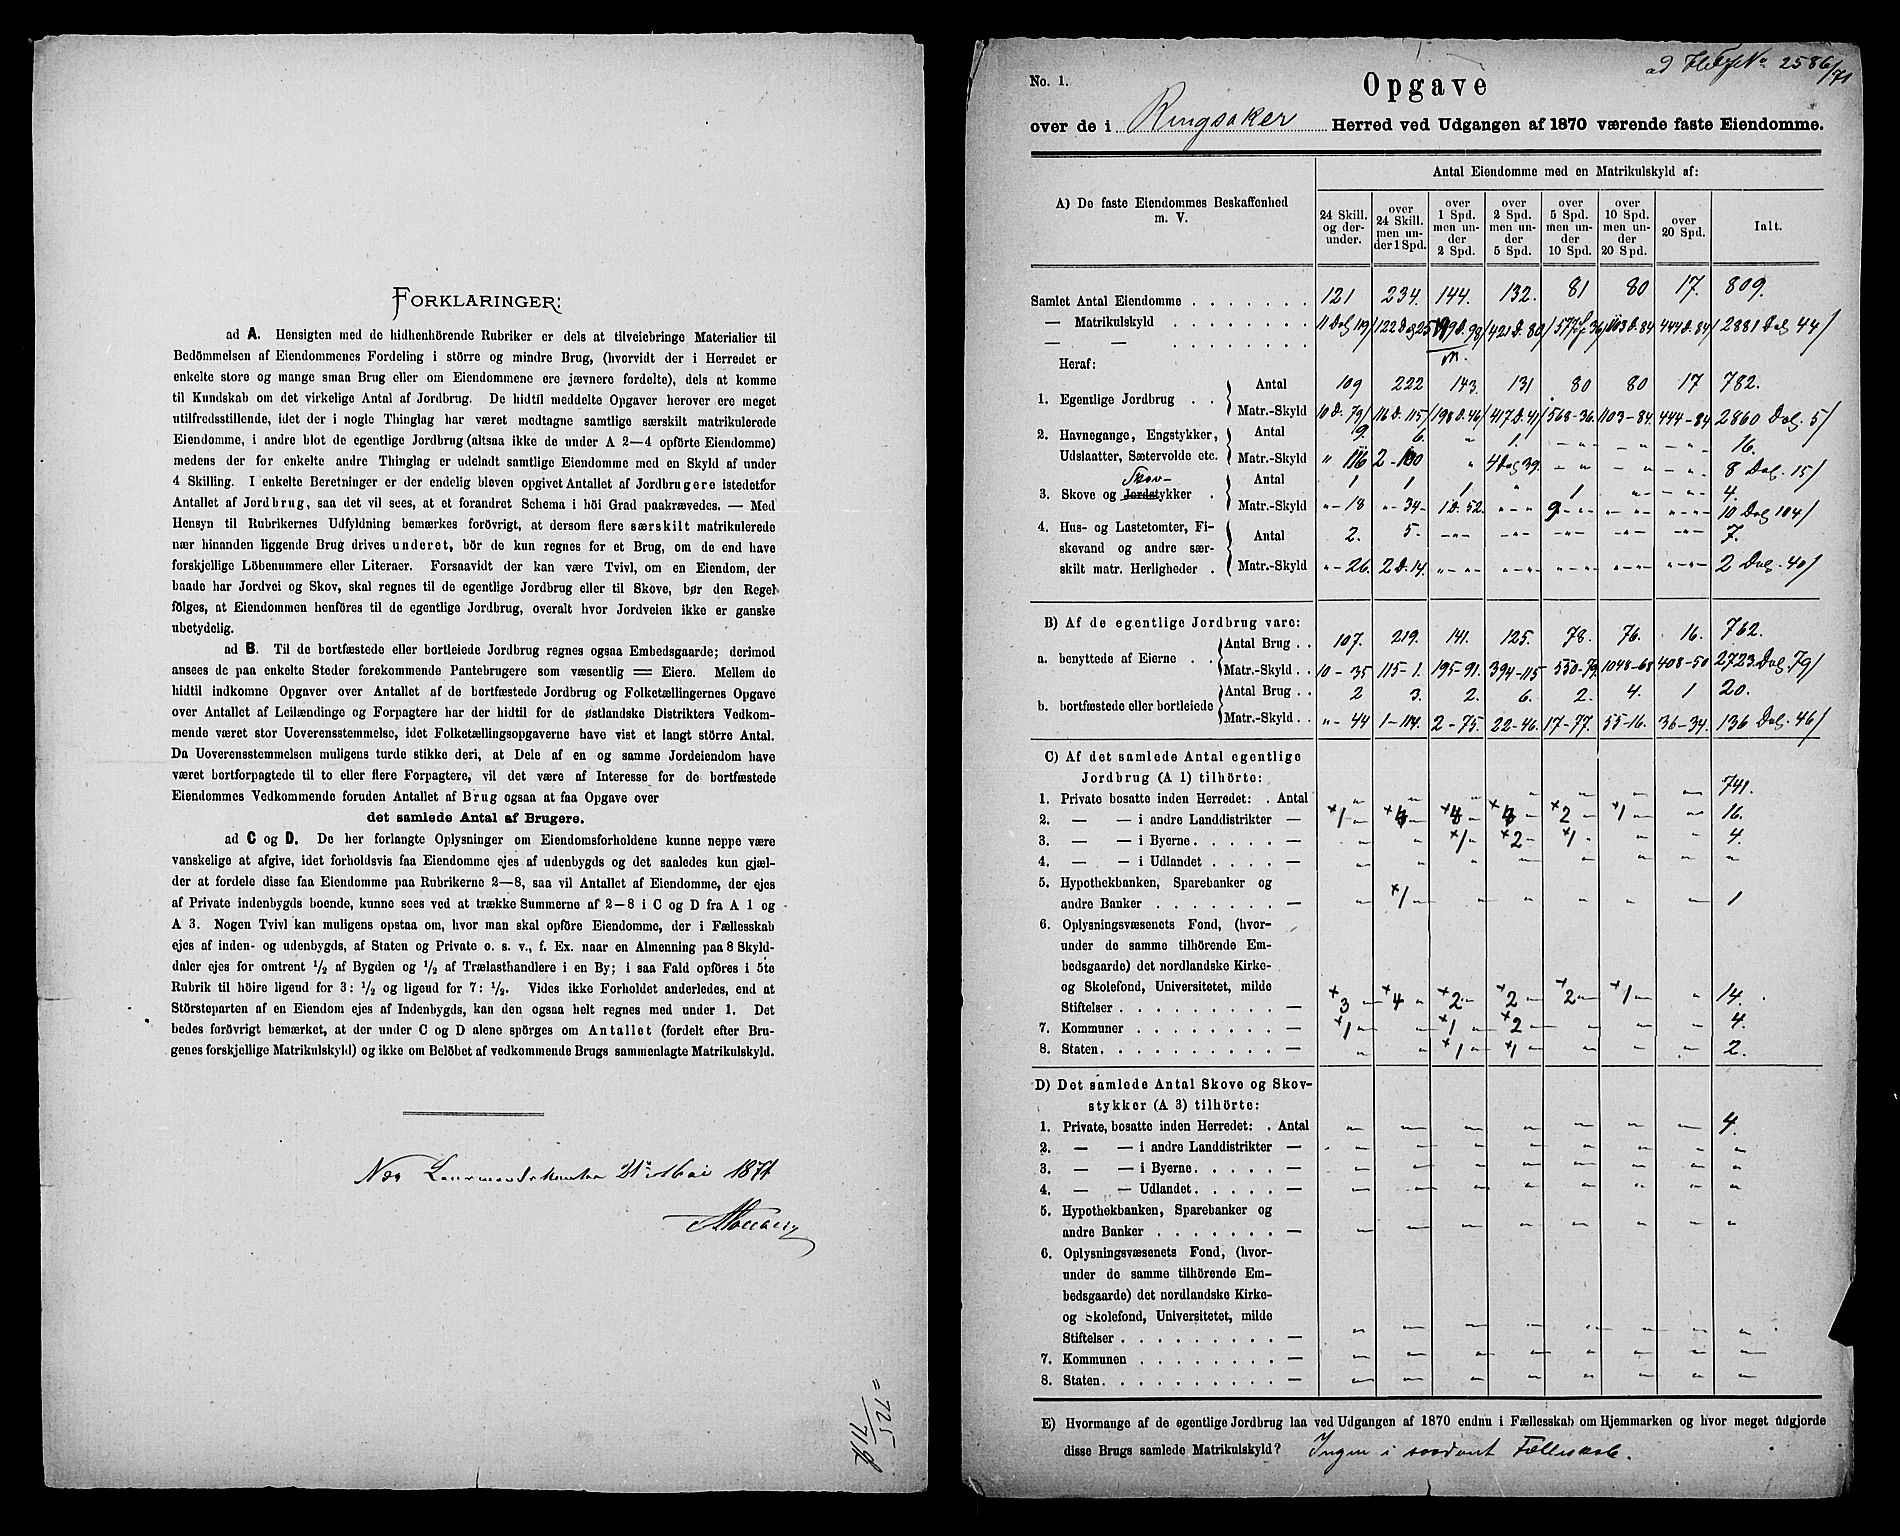 FORKLARINGER:
ad A. Hensigten med de hidhenhörende Rubriker er dels at tilveiebringe Materialier til
Bedömmelsen af Eiendommenes Fordeling i större og mindre Brug, (hvorvidt der i Herredet er
enkelte store og mange smaa Brug eller om Eiendommene ere jævnere fordelte), dels at komme
til Kundskab om det virkelige Antal af Jordbrug. De hidtil meddelte Opgaver herover ere meget
utilfredsstillende, idet der i nogle Thinglag har været medtagne samtlige særskilt matrikulerede
Eiendomme, i andre blot de egentlige Jordbrug (altsaa ikke de under A 2—4 opförte Eiendomme)
medens der for enkelte andre Thinglag er udeladt samtlige Eiendomme med en Skyld af under
4 Skilling. I enkelte Beretninger er der endelig bleven opgivet Antallet af Jordbrugere istedetfor
Antallet af Jordbrug, saa det vil sees, at et forandret Schema i höi Grad paakrævedes. — Med
Hensyn til Rubrikernes Udfyldning bemærkes forövrigt, at dersom flere særskilt matrikulerede
nær hinanden liggende Brug drives underet, bör de kun regnes for et Brug, om de end have
forskjellige Löbenummere eller Literaer. Forsaavidt der kan være Tvivl, om en Eiendom, der
baade har Jordvei og Skov, skal regnes til de egentlige Jordbrug eller til Skove, bør den Regel
fölges, at Eiendommen henföres til de egentlige Jordbrug, overalt hvor Jordveien ikke er ganske
ubetydelig.
ad B. Til de bortfæstede eller bortleiede Jordbrug regnes ogsaa Embedsgaarde; derimod
ansees de paa enkelte Steder forekommende Pantebrugere som væsentlig = Eiere. Mellem de
hidtil indkomne Opgaver over Antallet af de bortfæstede Jordbrug og Folketællingernes Opgave
over Antallet af Leilændinge og Forpagtere har der hidtil for de østlandske Distrikters Vedkom-
mende været stor Uoverensstemmelse, idet Folketællingsopgaverne have vist et langt större Antal.
Da Uoverensstemmelsen muligens turde stikke deri, at Dele af en og samme Jordeiendom have
været bortforpagtede til to eller flere Forpagtere, vil det være af Interesse for de bortfæstede
Eiendommes Vedkommende foruden Antallet af Brug ogsaa at faa Opgave over
det samlede Antal af Brugere.
ad C og D. De her forlangte Oplysninger om Eiendomsforholdene kunne neppe være
vanskelige at afgive, idet forholdsvis faa Eiendomme ejes af udenbygds og det saaledes kun gjæl-
der at fordele disse faa Eiendomme paa Rubrikerne 2—8, saa vil Antallet af Eiendomme, der ejes
af Private indenbygds boende, kunne sees ved at trække Summerne af 2—8 i C og D fra A 1 og
A 3. Nogen Tvivl kan muligens opstaa om, hvor man skal opföre Eiendomme, der i Fællesskab
ejes af inden- og udenbygds, af Staten og Private o. s. v., f. Ex. naar en Almenning paa 8 Skyld-
daler ejes for omtrent 1/2 af Bygden og 1/2 af Trælasthandlere i en By; i saa Fald opföres i 5te
Rubrik til höire ligeud for 3: 1/2 og ligeud for 7: 1/2. Vides ikke Forholdet anderledes, end at
Störsteparten af en Eiendom ejes af Indenbygds, kan den ogsaa helt regnes med under 1. Det
bedes forövrigt bemærket, at der under C og D alene spörges om Antallet (fordelt efter Bru-
genes forskjellige Matrikulskyld) og ikke om Belöbet af vedkommende Brugs sammenlagte Matrikulskyld.
Næs Lensmandskontor 21de Mai 1871
725/71
No. 1.
2586/71
Opgave
over de i Ringsaker Herred ved Udgangen af 1870 værende faste Eiendomme.
A) De faste Eiendommes Beskaffenhed m. V. Antal Eiendomme med en Matrikulskyld af:
24 Skill. og der- under. over 24 Skill. men un- der 1 Spd. over 1 Spd. men un- der 2 Spd. over 2 Spd. men un- der 5 Spd. over 5 Spd. men un- der 10 Spd. over 10 Spd. men un- der 20 Spd. over 20 Spd. Ialt.
Samlet Antal Eiendomme 121 234. 144. 132. 81 80 17. 809.
— Matrikulskyld 11 Dal 119 122 Dal 25 199 D. 98 421 D. 80 577 36 1103 D. 84 444 D. 84 2881 Dal 44/
— —
Heraf:
1. Egentlige Jordbrug Antal 109 222 143. 131 80 80 17 782.
Matr.-Skyld 10 D. 79 116 D. 115 198 D. 46 417 D. 41 568-36 1103-84 444-84 2860 Dal. 5/
2. Havnegange, Engstykker, Antal 9. 6. " 1. - " - - " - - " - 16.
Udslaatter, Sætervolde etc. Matr.-Skyld " 116 2-100 " 4 Dal 39. - " - " - " - 8 Dal. 15/
Skov-
3. Skove og Jordstykker Antal 1 1 1 " 1 " - " - 4.
Matr.-Skyld "-18 "-34- 1 D. 52. " - " 9-"- "-" -"-"- 10 Dal 104/
4. Hus- og Lastetomter, Fi-
skevand og andre sær- Antal 2. 5. -"- -"- -"- -"- -"- 7.
skilt matr. Herligheder Matr.-Skyld "-26. 2 D. 14. "-"- "-"- "-"- "-"- "-"- 2 Dal. 40/
B) Af de egentlige Jordbrug vare:
a. benyttede af Eierne Antal Brug 107. 219. 141. 125. 78. 76. 16. 762.
Matr.-Skyld 10-35 115-1. 195-91. 394-115 550-79. 1048-68 408-50 2723 Dal. 79/
b. bortfæstede eller bortleiede Antal Brug 2 3. 2. 6. 2. 4. 1 20.
Matr.-Skyld "-44 1-114. 2-75. 22-46. 17-77. 55-16. 36-34. 136 Dal. 46/
C) Af det samlede Antal egentlige
Jordbrug (A 1) tilhörte:
1. Private bosatte inden Herredet: Antal " " " " " " " 741.
2. — — i andre Landdistrikter — +1 +4 +4 +4 +2 +1 " 16.
3. — — i Byerne — " " +1 +2 +1 " " 4.
4. — — i Udlandet — " " " " " " " "
5. Hypothekbanken, Sparebanker og
andre Banker — " +1 " " " " " 1
6. Oplysningsvæsenets Fond, (hvor-
under de samme tilhörende Em-
bedsgaarde) det nordlandske Kirke-
og Skolefond, Universitetet, milde
Stiftelser — +3 +4 +2 +2 +2 +1 " 14.
7. Kommuner — +1 " +1 +2 " " " 4.
8. Staten — " " +1 +1 " " " 2.
D) Det samlede Antal Skove og Skov-
stykker (A 3) tilhörte:
1. Private, bosatte inden Herredet: Antal " " " " " " " 4.
2. — — i andre Landdistrikter — " " " " " " " "
3. — — i Byerne — " " " " " " " "
4. — — Udlandet — " " " " " " " "
5. Hypothekbanken, Sparebanker og
andre Banker — " " " " " " " "
6. Oplysningsvæsenets Fond, (hvor-
under de samme tilhörende Em-
bedsgaarde) det nordlandske Kirke-
og Skolefond, Universitetet, milde
Stiftelser — " " " " " " " "
7. Kommunen — " " " " " " " "
8. Staten — " " " " " " " "
E) Hvormange af de egentlige Jordbrug laa ved Udgangen af 1870 endnu i Fællesskab om Hjemmarken og hvor meget udgjorde
disse Brugs samlede Matrikulskyld? Ingen i saadant Fælleskab.